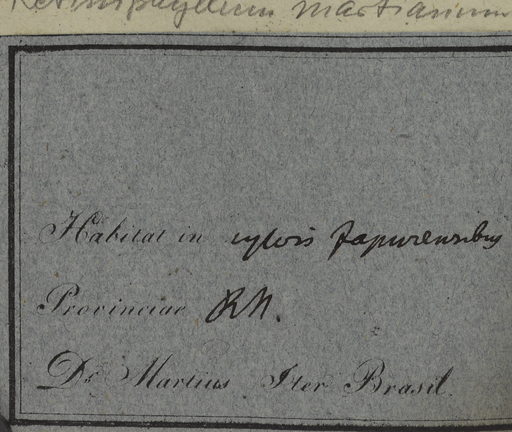 Retiniphyllum martianum
Habitat in sylvis Japurensibus
Provinciae R.N.
Dr. Martius Iter Brasil.